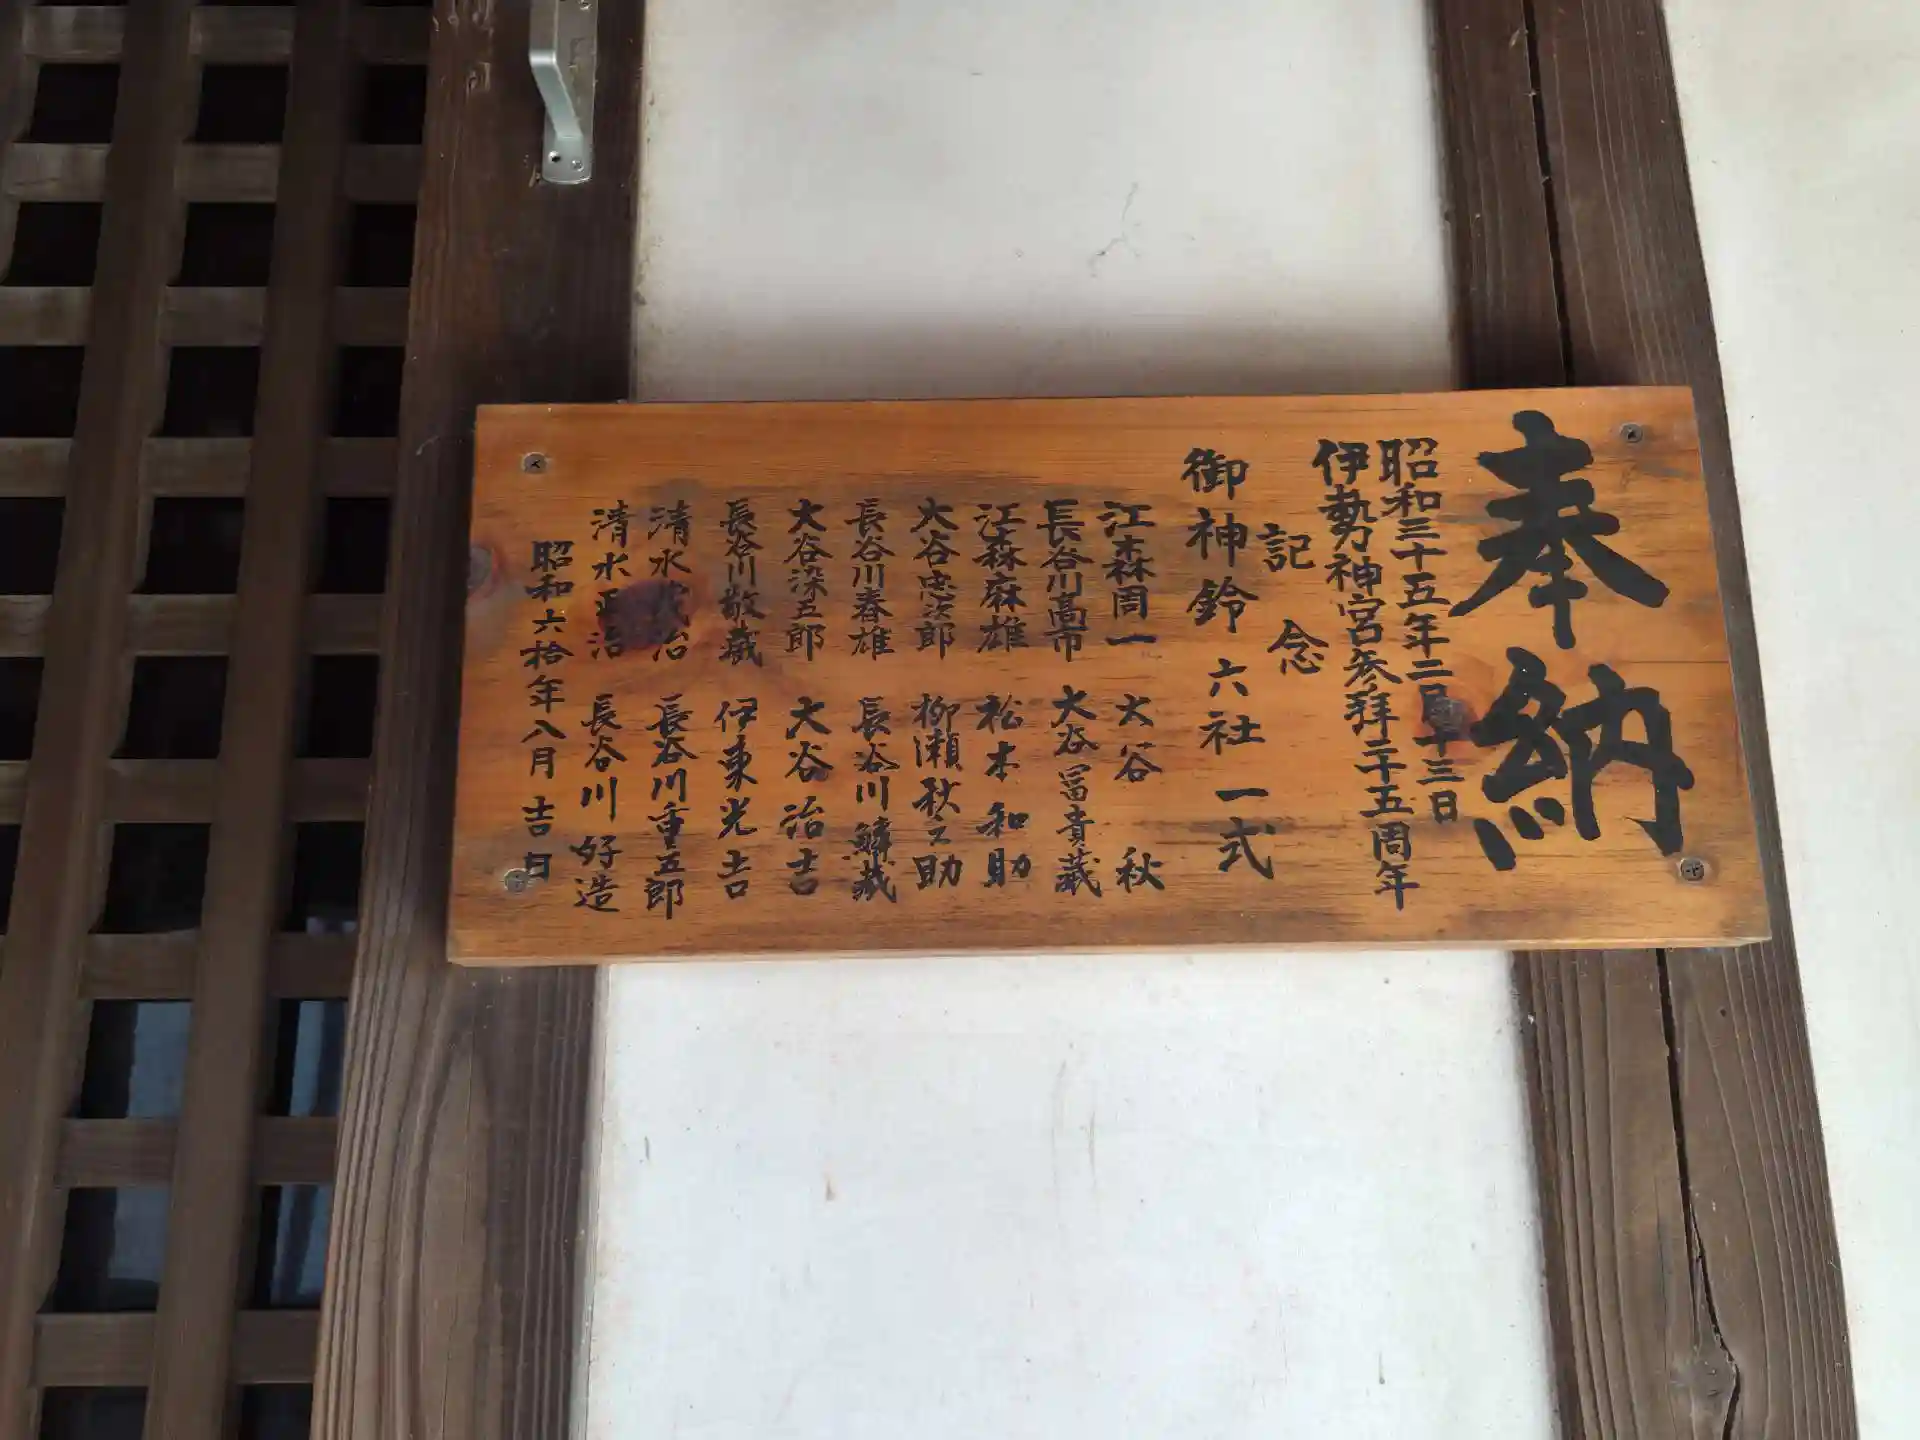 奉納
昭和三十五年二月十三日
伊勢神宮参拝二十五周年
記念
御神鈴 六社 一式
江森周一 大谷 秋
長谷川高市 大谷冨貴蔵
江森麻雄 松本和助
大谷忠次郎 柳瀬秋之助
長谷川春雄 長谷川鱗蔵
大谷染五郎 大谷治吉
長谷川敬蔵 伊東光吉
清水茂治 長谷川重五郎
清水正治 長谷川好造
昭和六拾年八月吉日